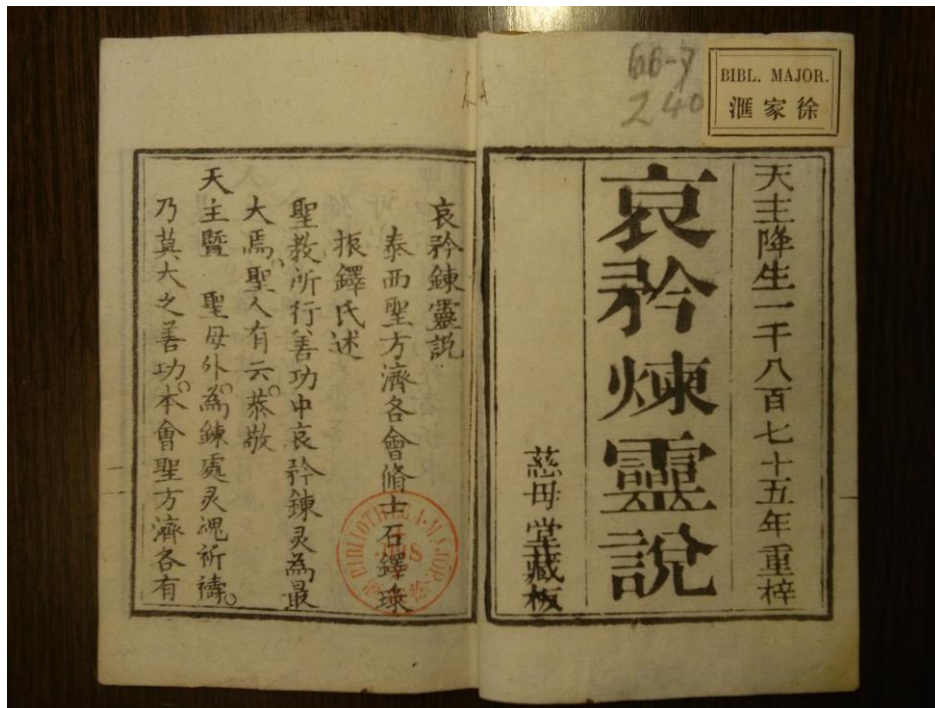 66-7
240
BIBL. MAJOR.
徐家滙
天主降生一千八百七十五年重梓
哀矜煉靈說
慈母堂藏板
哀矜鍊靈說
泰西聖方濟各會脩士石鐸琭
振鐸氏述
聖教所行善功中哀矜鍊灵為最
大焉。聖人有云。恭敬
天主暨 聖母外。為鍊處灵魂祈禱。
乃莫大之善功。本會聖方濟各有